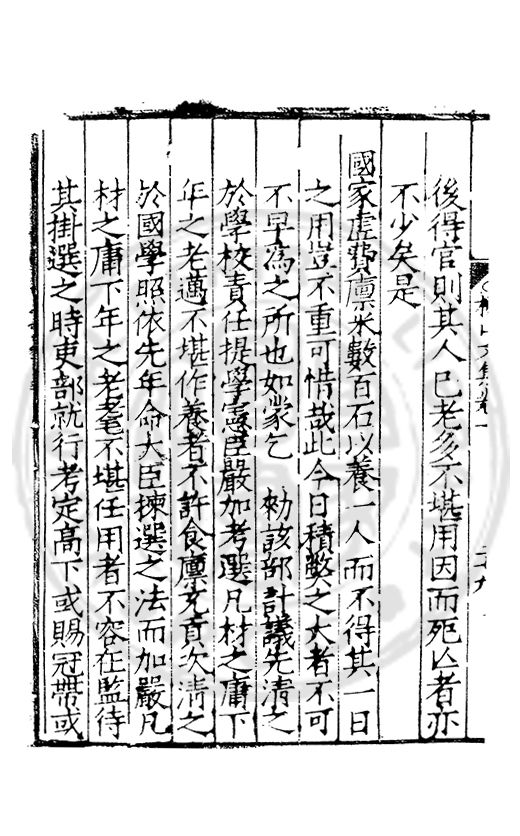 後得官則其人已老多不堪用因而死亾者亦
不少矣是
國家虛費廪米數百石以養一人而不得其一日
之用豈不重可惜哉此今日積弊之大者不可
不早為之所也如蒙乞　勑該部計議先清之
於學校責任提學憲臣嚴加考選凡材之庸下
年之老邁不堪作養者不許食廪充貢次清之
於國學照依先年命大臣揀選之法而加嚴凡
材之庸下年之老耄不堪任用者不容在監待
其掛選之時吏部就行考定高下或賜冠帶或